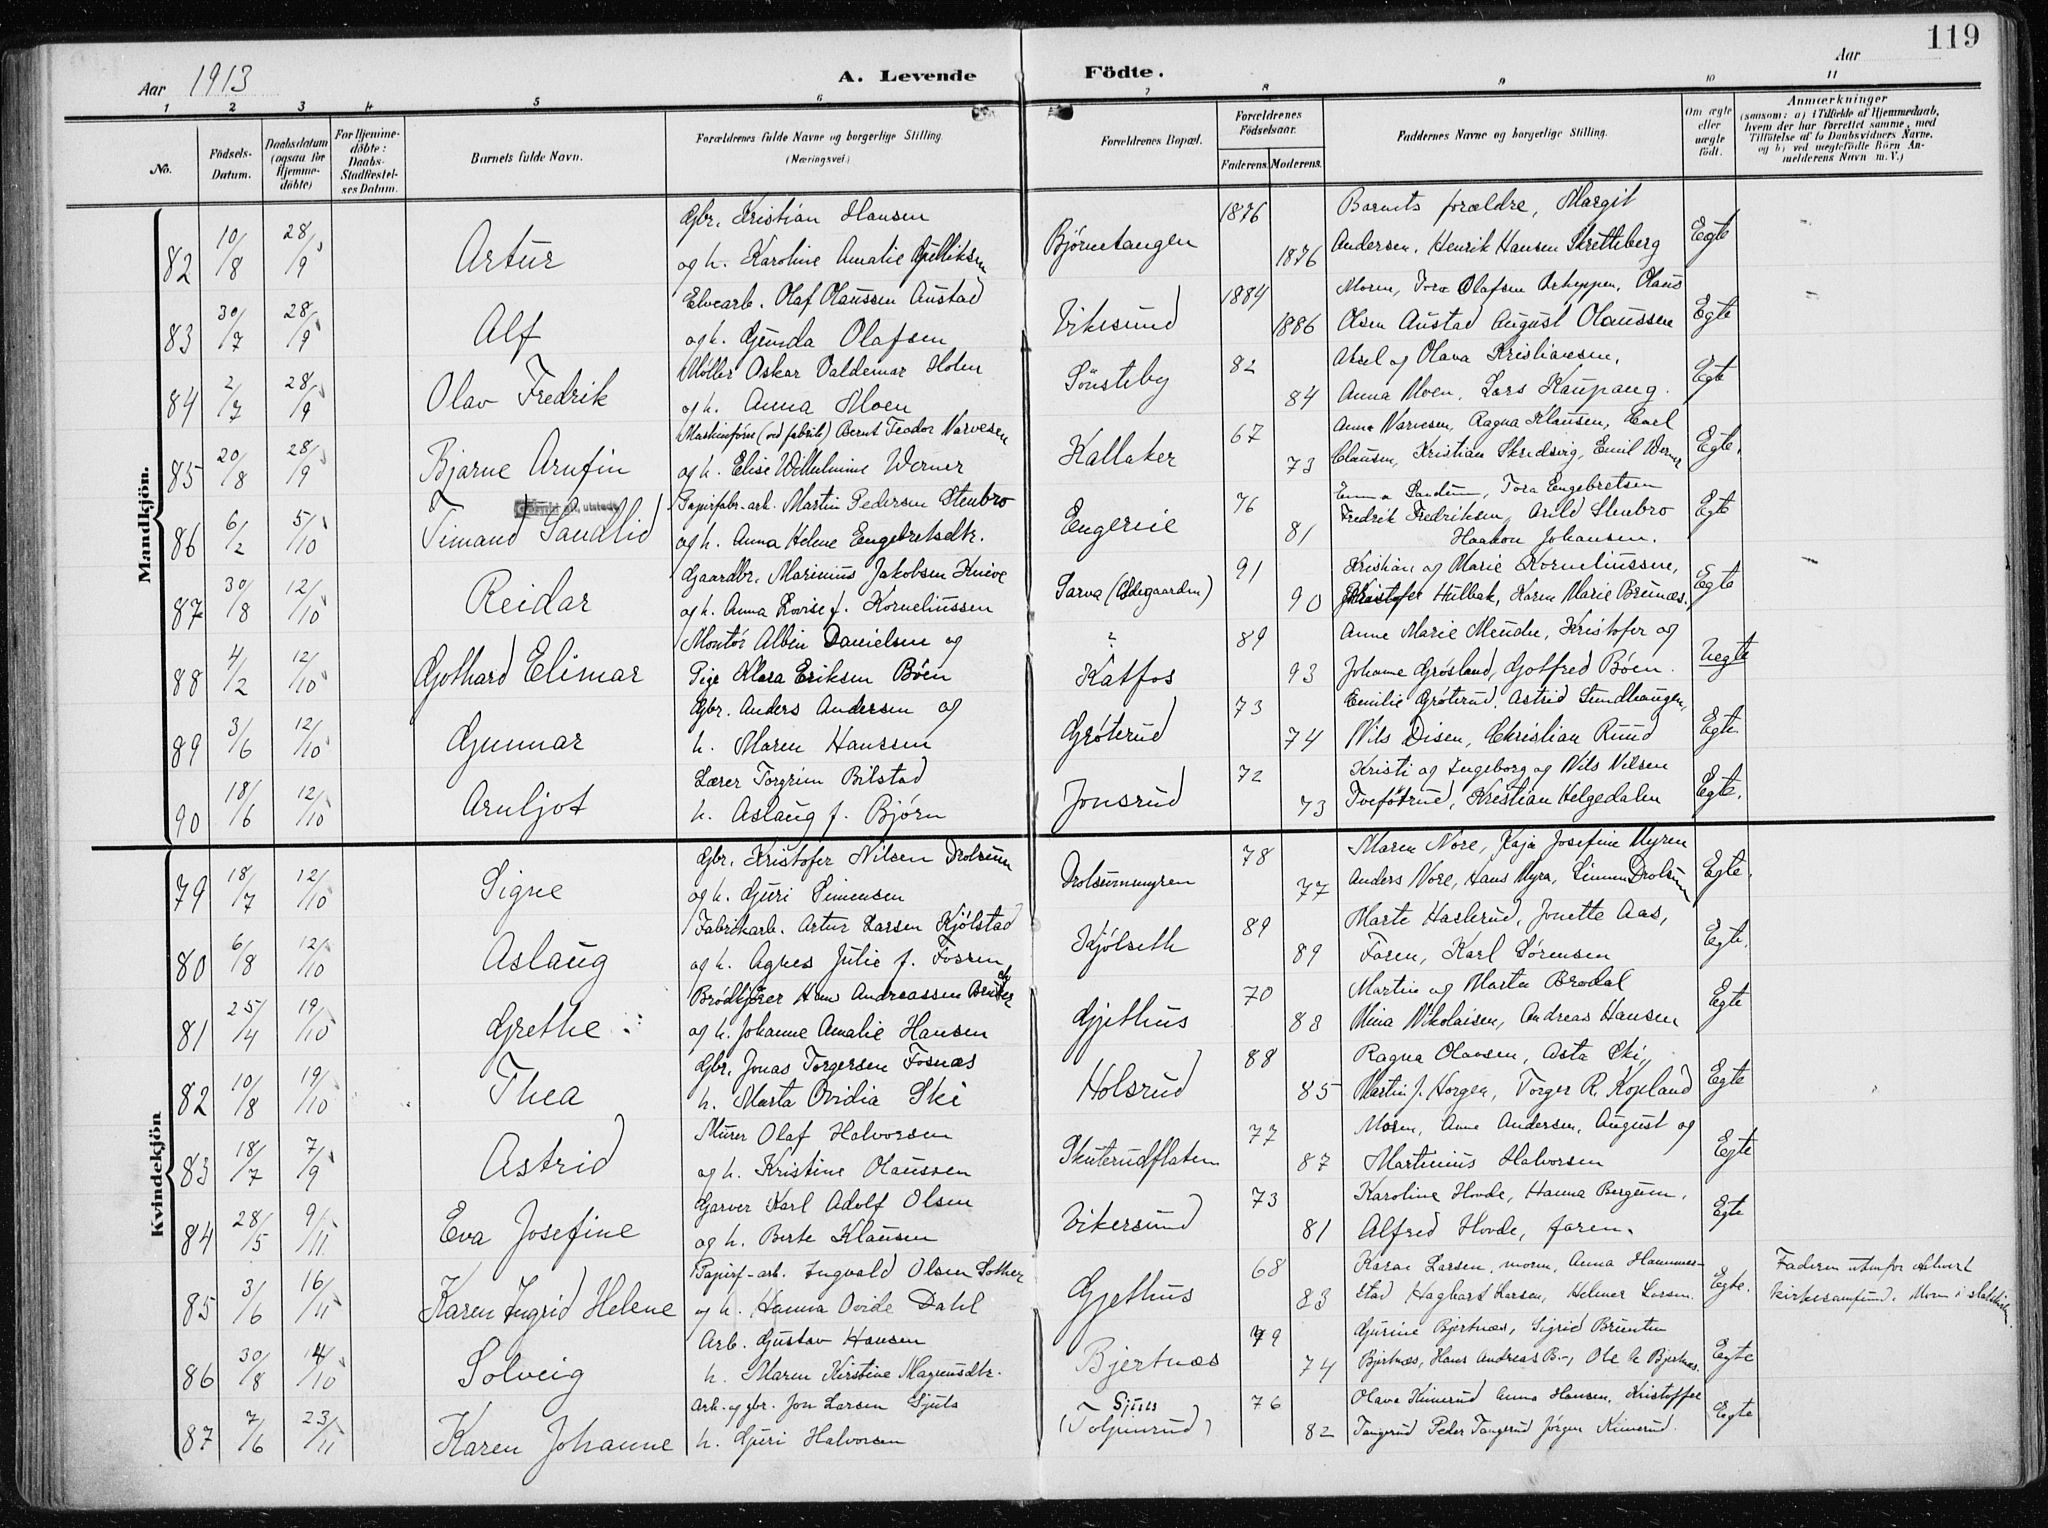 119
Aar 1913
A. Levende Födte.
Aar
1 2 3 4 5 6 7 8 9 10 11
No.
Födsels-Datum.
Daabsdatum (ogsaa for Hjemme-döbte)
For Hjemme-döbte: Daabs-Stadfæstel-ses Datum.
Barnets fulde Navn.
Forældrenes fulde Navne og borgerlige Stilling.
(Næringsvei.)
Forældrenes Bopæl.
Forældrenes Födselsaar.
Faderens. Moderens.
Faddernes Navne og borgerlige Stilling.
Om ægte eller uægte født.
Anmærkninger
(saasom: a) i Tilfælde af Hjemmedaab, hvem der har forrettet samme, med Tilføielse af to Daabsvidners Navne. og b) ved uægtefødte Börn An-melderens Navn m. V.)
Mandkjön.
82 10/8 28/9 Artur
Gbr. Kristian Hansen
og h. Karoline Amalie Gulliksen
Bjørnetangen 1876 1876
Barnets forældre, Margit
Andersen, Henrik Hansen Skretteberg
Egte
83 30/7 28/9 Alf
Elvearb. Olaf Olaussen Austad
og h. Gunda Olafsen
Vikesund 1884 1886
Moren, Tora Olafsen Olaus
Olsen Austad August Olaussen
Egte
84 2/7 28/9 Olav Fredrik
Møller Oskar Valdemar Holen
og h. Anna Moen
Sønsteby 82 84
Aksel og Olava Kristiansen,
Anna Moen, Lars Kaupang.
Egte
85 20/8 28/9 Bjarne Arnfin
Maskinfører (ved fabrik) Bernt Teodor Narvesen
og h. Elise Wilhelmine Werner
Kallaker 67 73
Anna Narvesen, Ragna Klausen, Carl
Clausen, Kristian Skredsvig, Emil Werner
Egte.
86 6/2 5/10 Timand Sandlid
Papirfabr-arb. Martin Pedersen Stenbro
og h. Anna Helene Engebretsdtr.
Engerie 76 81
Emma Sandum, Tora Engebretsen
Fredrik Fredriksen, Arild Stenbro
Haakon Johansen.
Egte
87 30/8 12/10 Reidar
Gaardbr. Marinius Jakobsen Knive
og h. Anna Lovise f. Korneliussen
Sarva (Ødegaarden) 91 90
Kristian og Marie Korneliussen,
Kristofer Hulbak, Karen Marie Breines.
Egte
88 4/2 12/10 Gothard Elimar
Montør Albin Danielsen og
Pige Klara Eriksen Bøen
?
Katfos 89 93
Anne Marie Mendu, Kristofer og
Johanne Grøsland, Gotfred Bøen.
Uegte
89 3/6 12/10 Gunnar
Gbr. Anders Andersen og
h. Maren Hanssen
Grøterud 73 74
Emilie Grøterud, Astrid Sundhaugen,
Nils Disen, Christian Ruud
Egte.
90 18/6 12/10 Arnljot
Lærer Torgrim Bilstad
h. Aslaug f. Bjørn
Jonsrud 72 73
Kristi og Ingeborg og Nils Nilsen
Tveføtrud, Kristian Helgedalen
Egte.
Kvindekjön
79 18/7 12/10 Signe
Gbr. Kristofer Nilsen Drolsum
og h. Guri Simensen
Drolsumsmyren 78 77
Maren Nore, Kaja Josefine Myren
Anders Nore, Hans Myra, Simen Drolsum
Egte.
80 6/8 12/10 Aslaug
Fabrikarb. Artur Larsen Kjølstad
og h. Agnes Julie f. Fossen
Kjølseth 89 89
Marte Haslerud, Jonette Aas,
Faren, Karl Sørensen
Egte.
81 25/4 19/10 Grethe
Brødkjører Hans Andreassen
og h. Johanne Amalie Hansen
Gjethus 70 83
Martin og Marta Brødal
Mina Nikolaisen, Andreas Hansen
Egte
82 10/8 19/10 Thea
Gbr. Jonas Torgersen Fosnæs
h. Marta Ovidia Ski
Holsrud 88 85
Ragna Olausen, Asta Ski,
Martin J. Horgen, Torger R. Kopland
Egte
83 18/7 7/9 Astrid
Murer Olaf Halvorsen
og h. Kristine Olaussen
Skuterudflaten 77 87
Moren, Anne Andersen, August og
Martinius Halvorsen
Egte
84 28/5 9/11. Eva Josefine
Garver Karl Adolf Olsen
og h. Berte Klausen
Vikersund 73 81
Karoline Hovde, Hanna Bergum,
Alfred Hovde, faren.
Egte
85 3/6 16/11 Karen Ingrid Helene
Papirf-arb. Ingvald Olsen Sother
og h. Hanna Ovide Dahl
Gjethus 68 83
Karae Larsen, moren, Anna Hammer-
stad Hagbart Larsen, Helmer Larsen.
Egte.
Faderen utenfor ethvert
kirkesamfund. Moren i statskirken
86 30/8 14/10 Solveig
Arb. Gustav Hansen
h. Maren Kirstine Magnusdtr.
Bjertnæs 79 74
Gurine Bjertnæs, Sigrid Brunten
Bjertnæs, Hans Andreas B.-, Ole A Bjertnæs.
Egte
87 7/6 23/11 Karen Johanne
Arb. og gbr. Jon Larsen Sjuls
h. Guri Halvorsen
Sjuls
(Toljemrud) 76 82
Olava Kimerud Anna Hansen, Kristoffer
Tangerud Peder Tangerud Jørgen Kimerud.
Egte